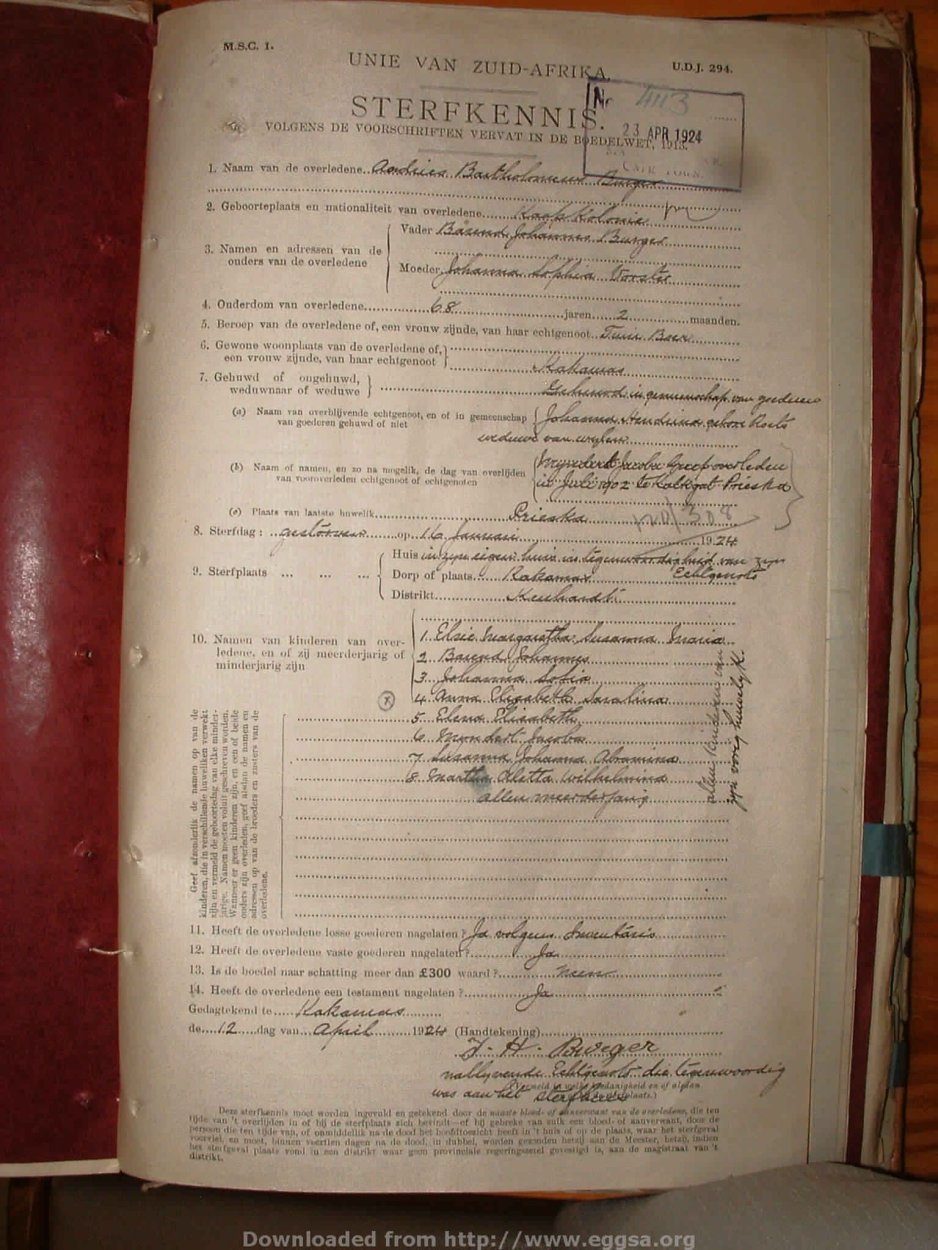 M.S.C. 1.
U.D.J. 294.
UNIE VAN ZUID-AFRIKA.
STERFKENNIS.
No 4113
23 APR 1924
VOLGENS DE VOORSCHRIFTEN VERVAT IN DE BOEDELWET, 1913.
1. Naam van de overledene. Andries Bartholomeus Burger
2. Geboorteplaats en nationaliteit van overledene Kaap Kolonie
3. Namen en adressen van de ouders van de overledene
Vader Barend Johannes Burger
Moeder Johanna Sophia Vorster
4. Ouderdom van overledene 68 jaren 2 maanden.
5. Beroep van de overledene of, een vrouw zijnde, van haar echtgenoot. Boer
6. Gewone woonplaats van de overledene of, een vrouw zijnde, van haar echtgenoot
Kakamas
7. Gehuwd of ongehuwd, weduwnaar of weduwe
Gehuwd in gemeenschap van goederen
(a) Naam van overblijvende echtgenoot, en of in gemeenschap van goederen gehuwd of niet
Johanna Hendrina gebore Roets
weduwe van wylen
(b) Naam of namen, en zo na mogelik, de dag van overlijden van vooroverleden echtgenoot of echtgenoten
Jacoba Greef overleden
in Juli 1902 te Kalkgat Prieska
(c) Plaats van laatste huwelik Prieska
8. Sterfdag: gestorven op 16 Januari 1924
9. Sterfplaats
Huis in zyn eigen huis in tegenwoordigheid van zyn Echtgenote
Dorp of plaats Kakamas
Distrikt Kenhardt
10. Namen van kinderen van overledene, en of zij meerderjarig of minderjarig zijn
1. Elsie Margaretha Susanna Maria
2 Barend Johannes
3 Johanna Sofia
4 Anna Elizabeth Carolina
5 Elena Elizabeth
6 Jacoba
7 Susanna Johanna Abramina
8 Martha Aletta Wilhelmina
allen meerderjarig
allen kinderen van
zyn vorig huwelyk.
Geef afzonderlik de namen op van de kinderen, die in verschillende huweliken verwekt zijn en vermeld de geboortedag van elke minderjarige. Namen moeten voluit geschreven worden. Wanneer er geen kinderen zijn, en een of beide ouders zijn overleden, geef alsdan de namen en adressen op van de broeders en zusters van de overledene.
11. Heeft de overledene losse goederen nagelaten? Ja volgens Inventaris
12. Heeft de overledene vaste goederen nagelaten? Ja
13. Is de boedel naar schatting meer dan £300 waard? neen
14. Heeft de overledene een testament nagelaten? Ja
Gedagtekend te Kakamas
de 12 dag van April 1924 (Handtekening)
J. H. Burger
nablyvende Echtgenote die tegenwoordig
was aan het sterfbed
Deze sterfkennis moet worden ingevuld en getekend door de naaste bloed- of aanverwant van de overledene, die ten
tijde van 't overlijden in of bij de sterfplaats zich bevindt—of bij gebreke van zulk een bloed- of aanverwant, door de
persoon die ten tijde van, of onmiddellik na de dood het hoofdtoezicht heeft in 't huis of op de plaats, waar het sterfgeval
voorviel, en moet, binnen veertien dagen na de dood, in dubbel, worden gezonden hetzij aan de Meester, hetzij, indien
het sterfgeval plaats vond in een distrikt waar geen provinciale regeringszetel gevestigd is, aan de magistraat van 't
distrikt.
Downloaded from http://www.eggsa.org